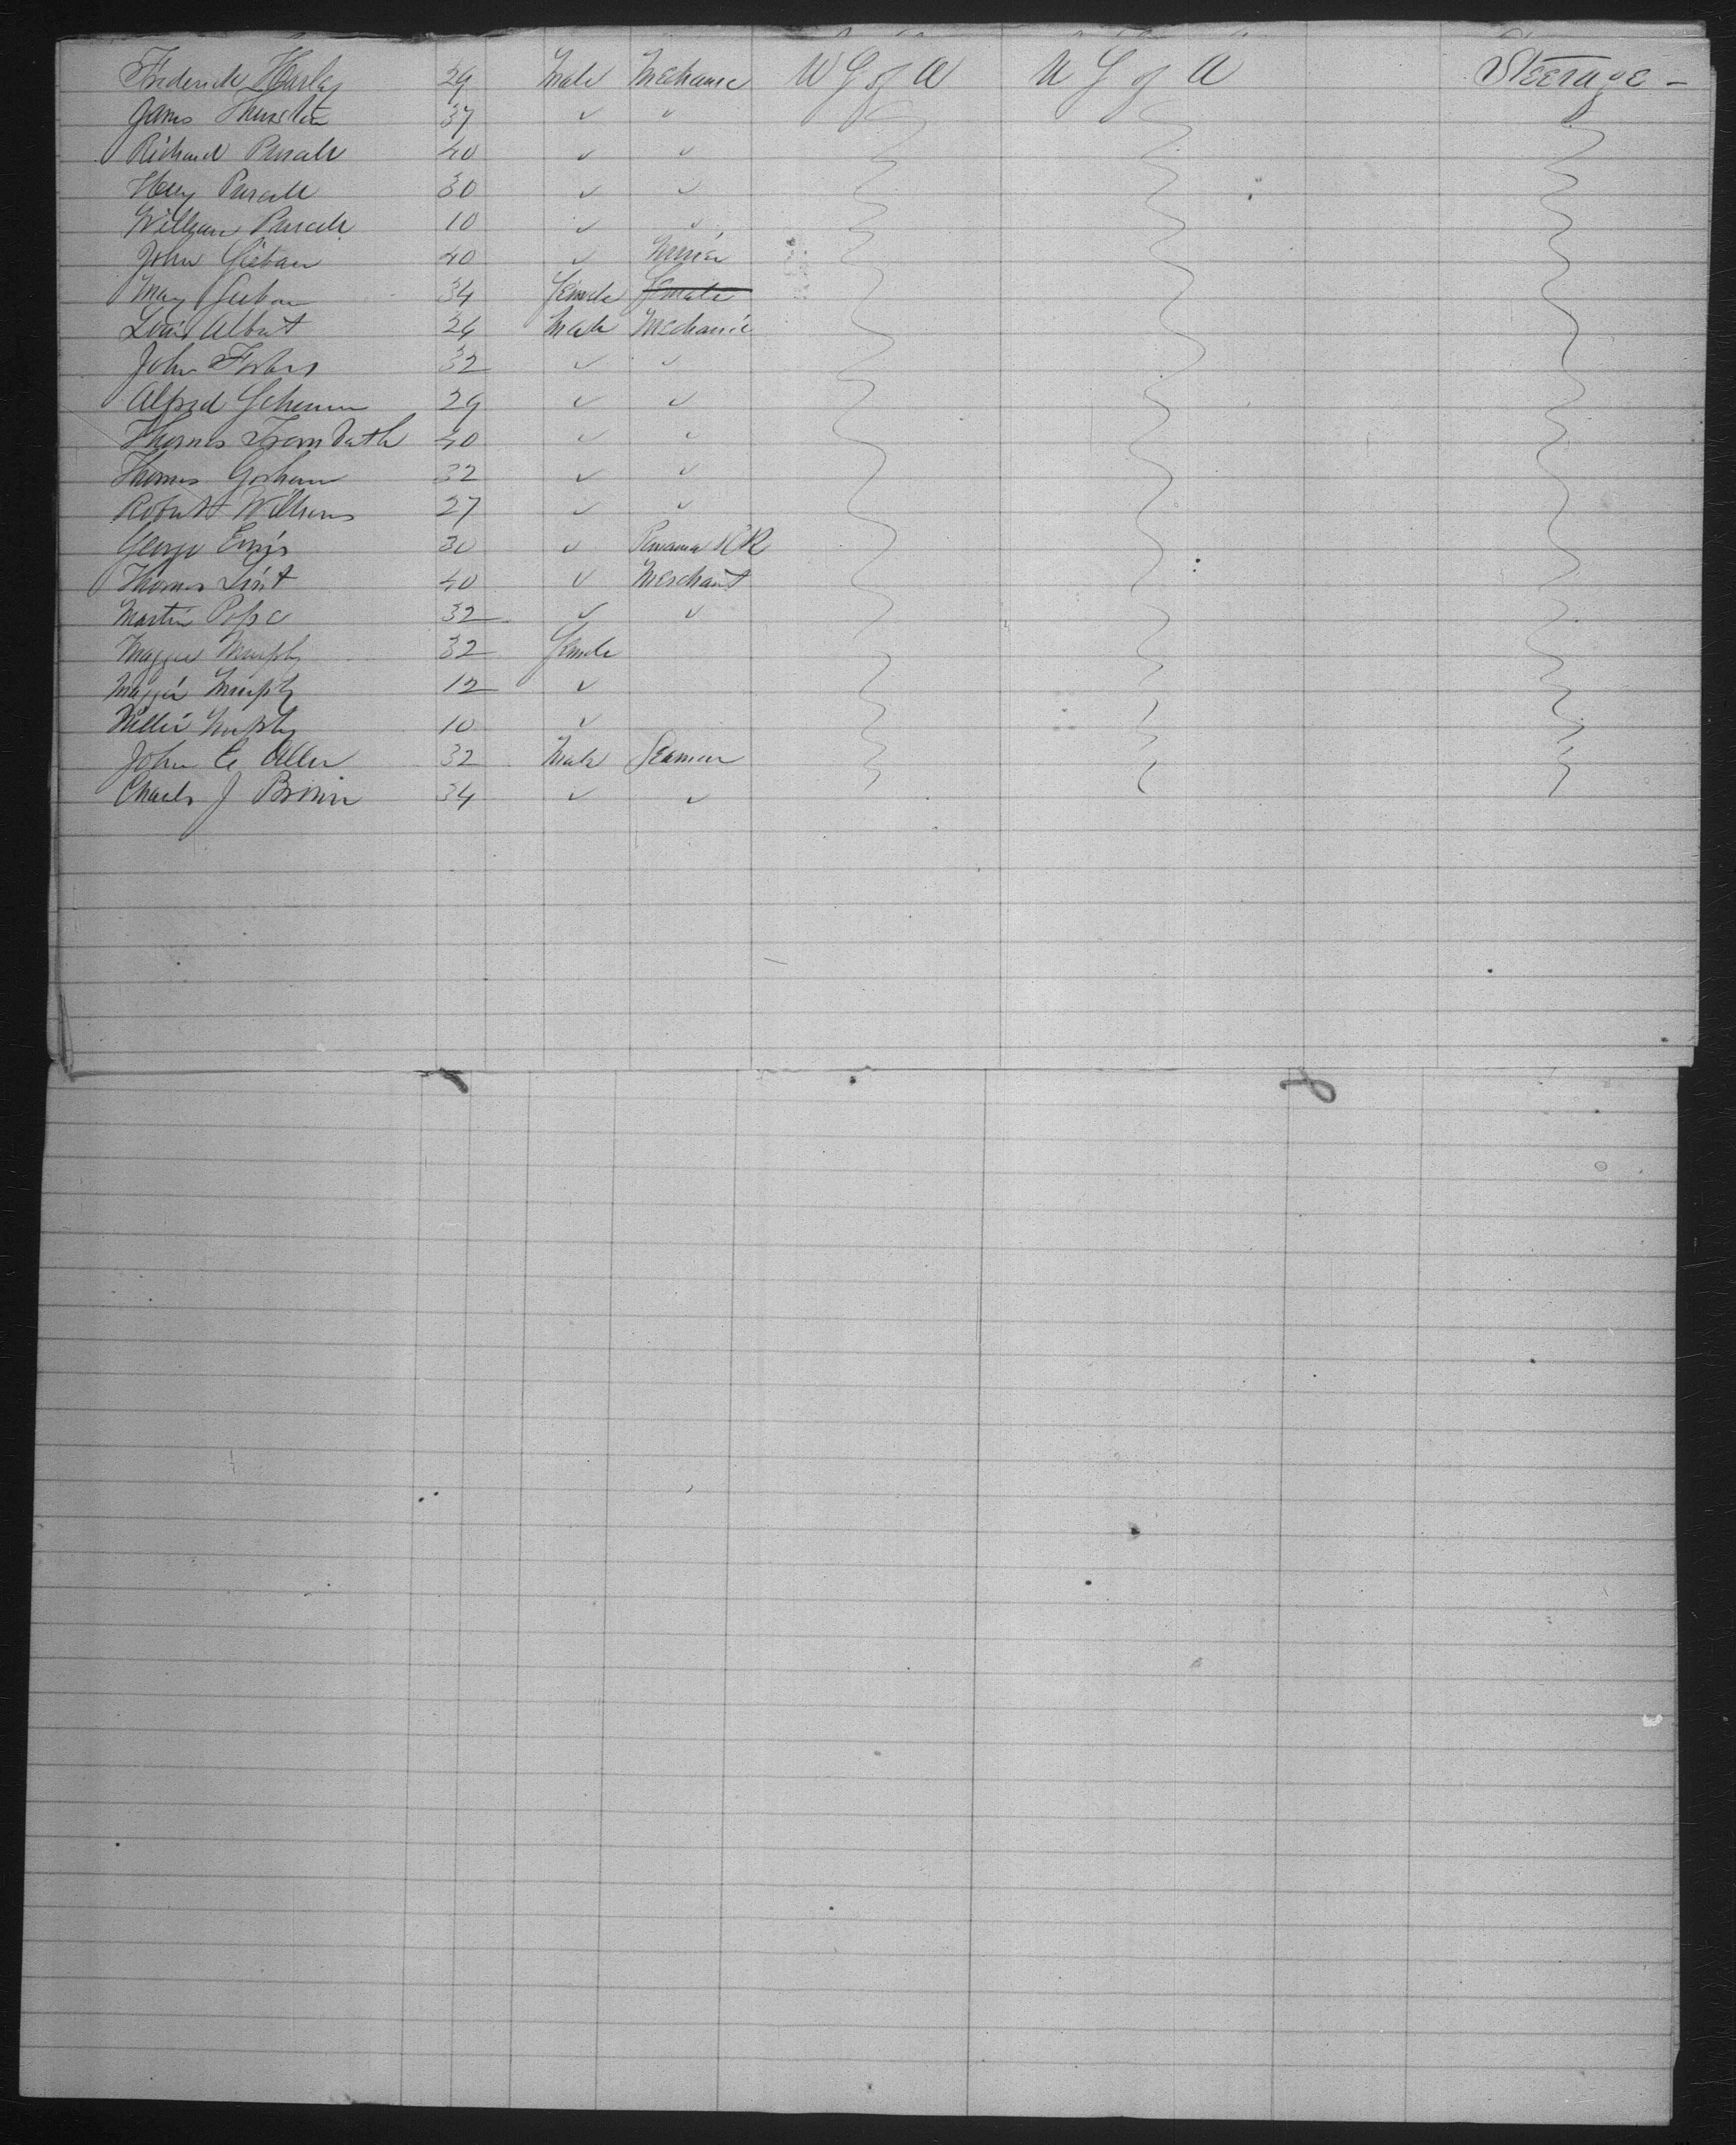 Frederick Hurley 29 Male Mechanic U S of A U S of A Steerage -
James Thurston 37 " "
Richard Purcell 40 " "
Hey Purcell 30 " "
William Purcell 10 " "
John 40 " Miner
May 34 Female Female
Louis Albert 24 Male Mechanic
John Forbes 32 " "
Alfred 29 " "
Thomas 40 " "
Thomas Gorham 32 " "
Robert Williams 27 " "
George 30 " Panama RR
Thomas 40 " Merchant
Martin Pope 32 " "
Maggie Murphy 32 Female
Maggie Murphy 12 "
Willie Murphy 10 "
John C Allen 32 Male Seaman
Charls J Brown 34 " "